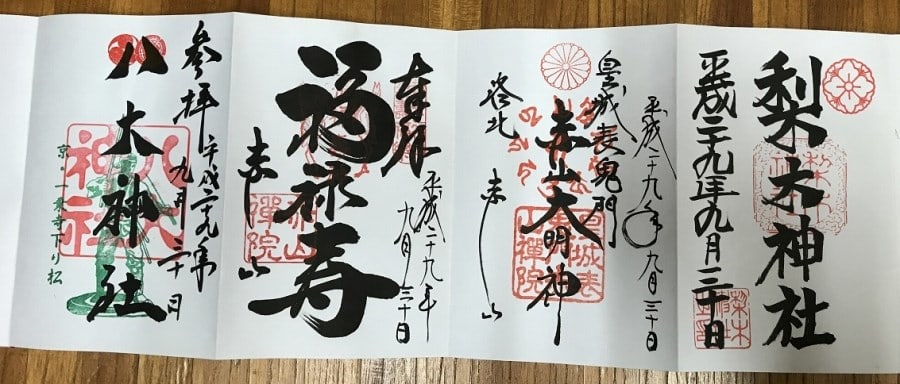 梨木神社
平成二十九年九月三十日
平成二十九年九月三十日
皇城表鬼門
赤山大明神
皇城表
山禅院
洛北
赤山
奉拝
平成二十九年
九月三十日
福禄寿
赤山
禅院
赤山
参拝
平成二十九年
九月三十日
八大神社
八大
神社
京・一乗寺下り松